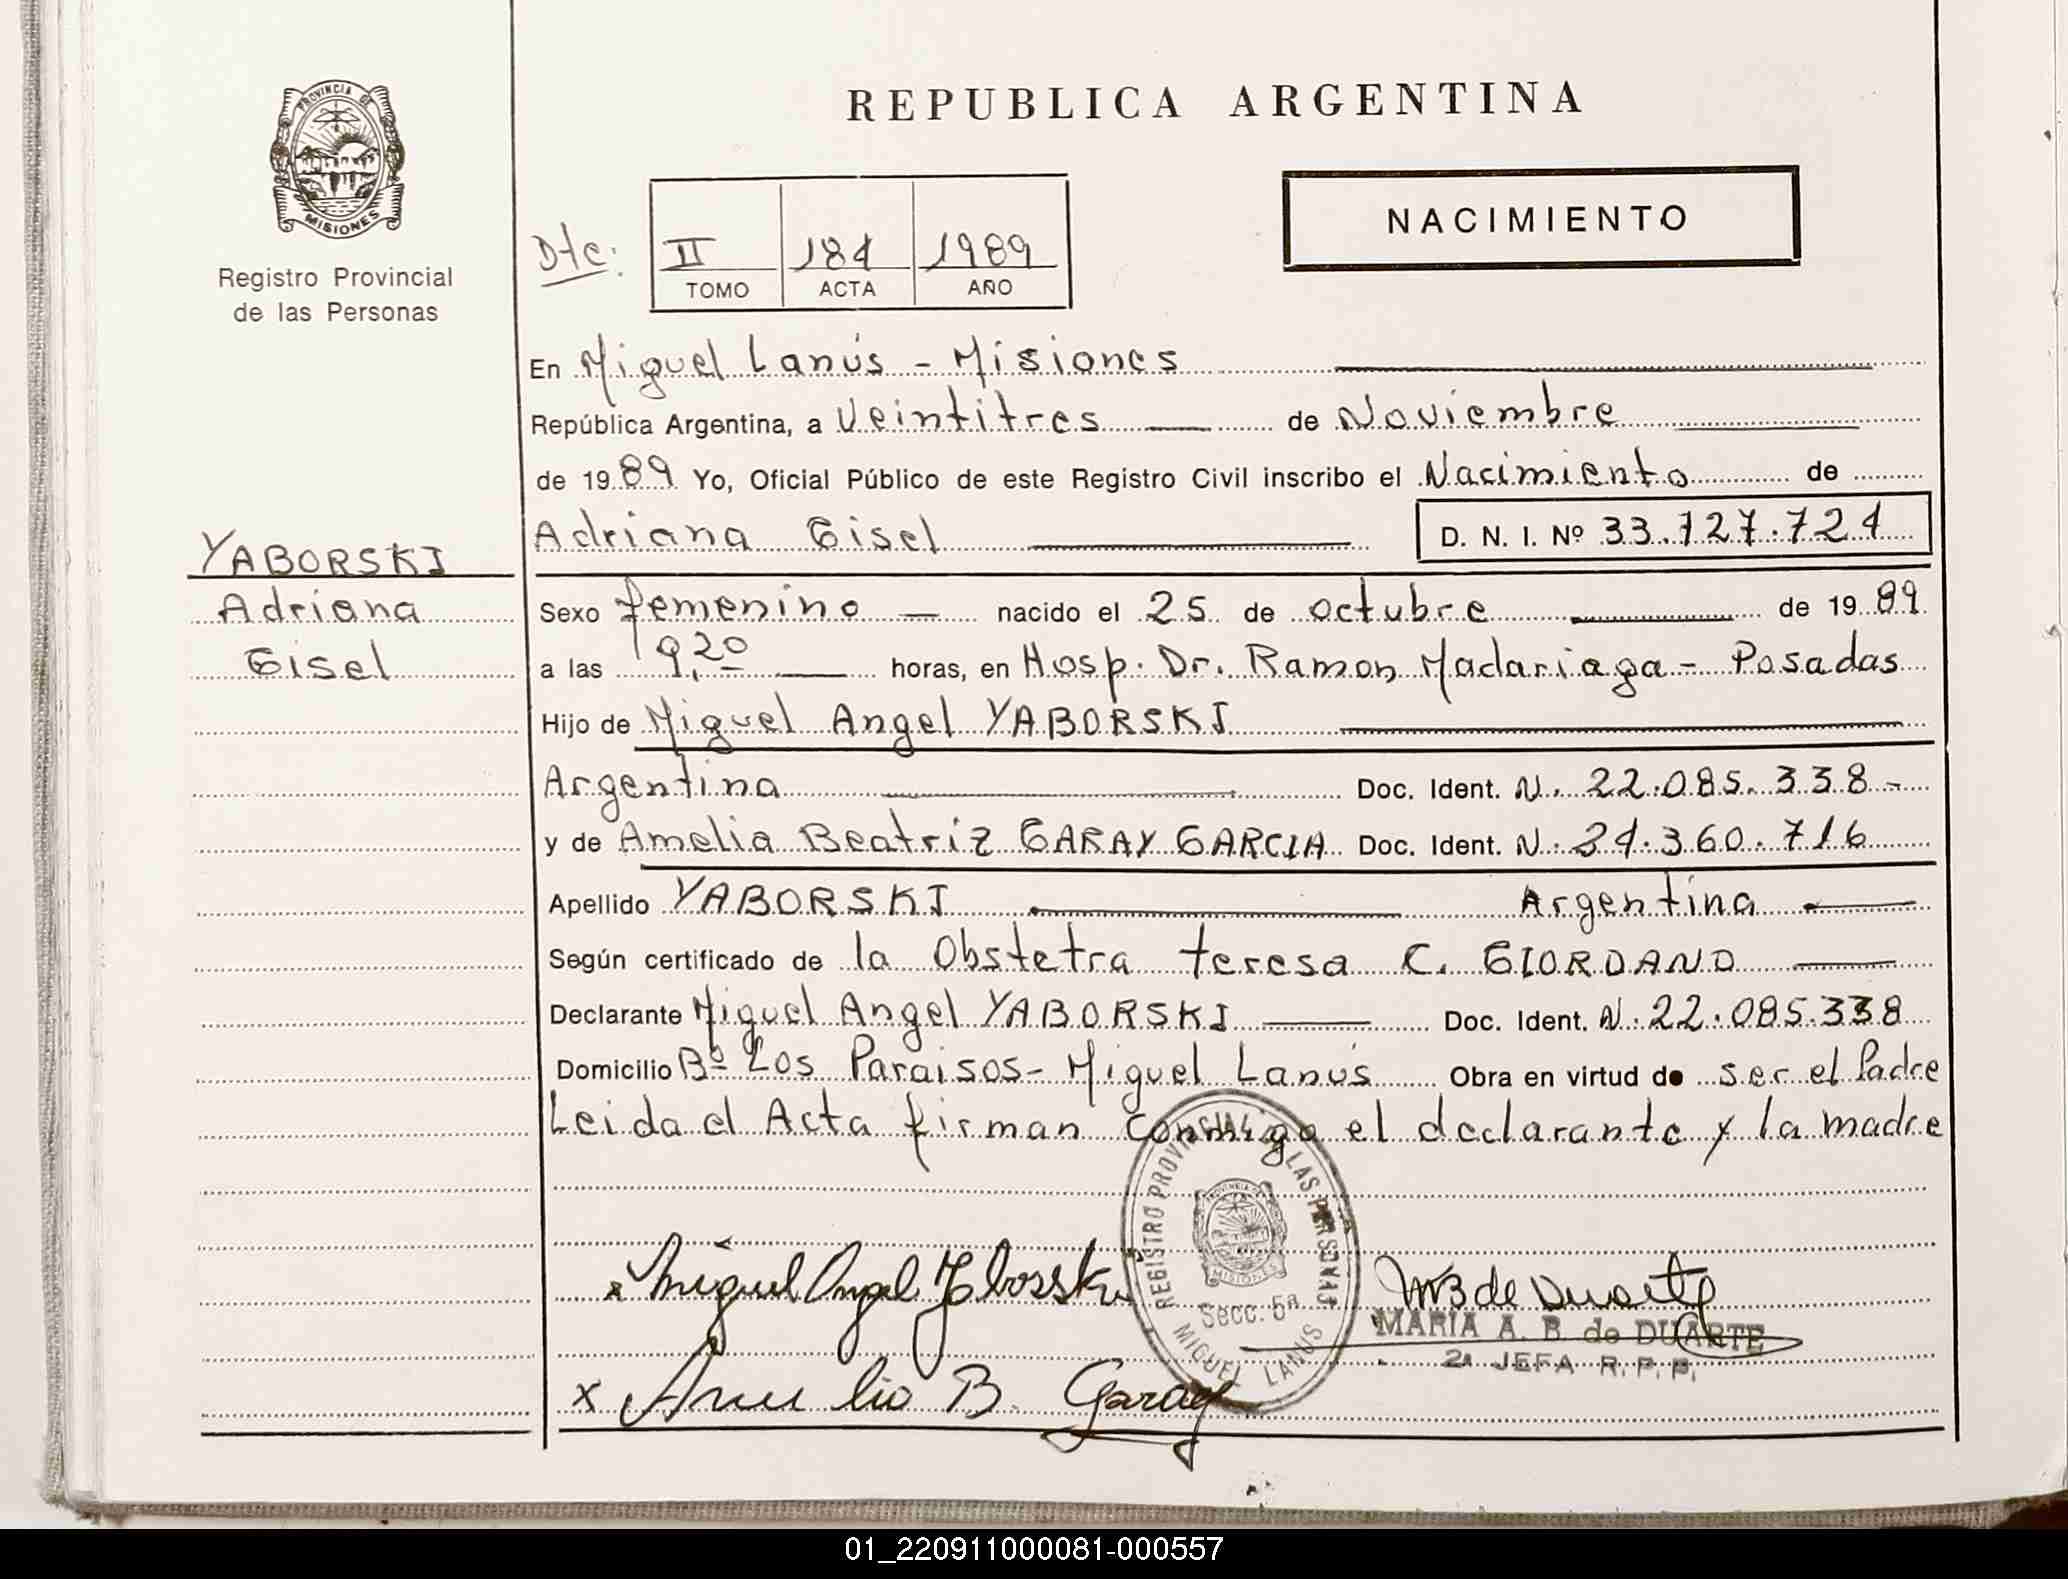 PROVINCIA DE
MISIONES
Registro Provincial
de las Personas
REPUBLICA ARGENTINA
NACIMIENTO
Dtc:
II 184 1989
TOMO ACTA AÑO
En Miguel Lanús - Misiones
República Argentina, a Veintitres de Noviembre
de 1989 Yo, Oficial Público de este Registro Civil inscribo el Nacimiento de
Adriana Gisel D. N. I. Nº 33.127.724
YABORSKI
Adriana
Gisel
Sexo femenino nacido el 25 de octubre de 1989
a las 9,20 horas, en Hosp. Dr. Ramon Madariaga - Posadas
Hijo de Miguel Angel YABORSKI
Argentina Doc. Ident. N. 22.085.338-
y de Amelia Beatriz GARAY GARCIA Doc. Ident. N. 24.360.716
Apellido YABORSKI Argentina
Según certificado de la Obstetra Teresa C. GIORDANO
Declarante Miguel Angel YABORSKI Doc. Ident. N. 22.085.338
Domicilio Bº Los Paraisos - Miguel Lanús Obra en virtud de ser el Padre
Leida el Acta firman conmigo el declarante y la madre
REGISTRO PROVINCIAL DE LAS PERSONAS
PROVINCIA DE
MISIONES
Secc. 5ª
MIGUEL LANUS
x Miguel Angel
MB de Duarte
MARIA A. B. de DUARTE
2ª JEFA R. P. P.
x Amelia B. Garay
01_220911000081-000557